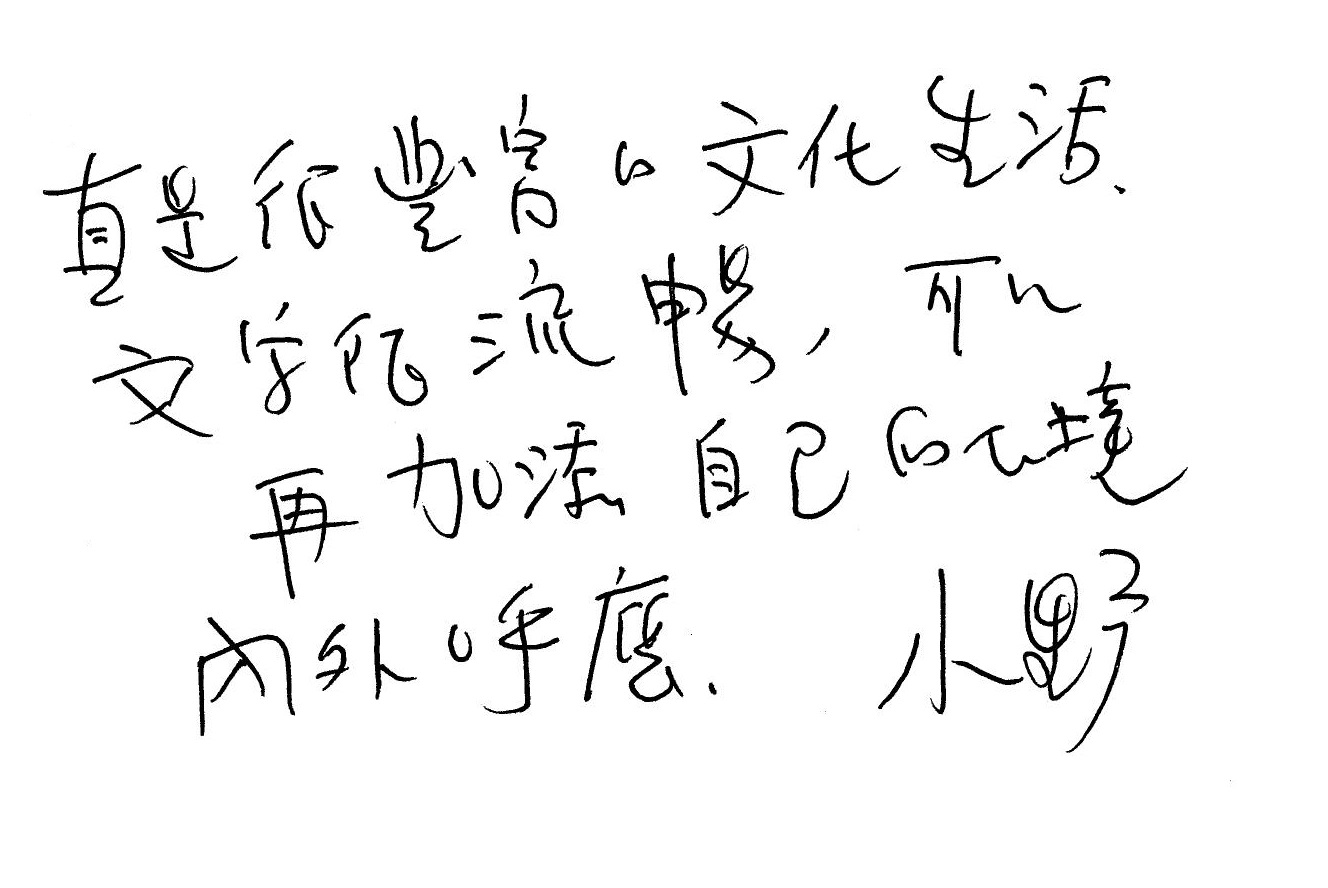 真是很豐富的文化生活、
文字很流暢，可以
再加添自己的心境
內外呼應.　小野